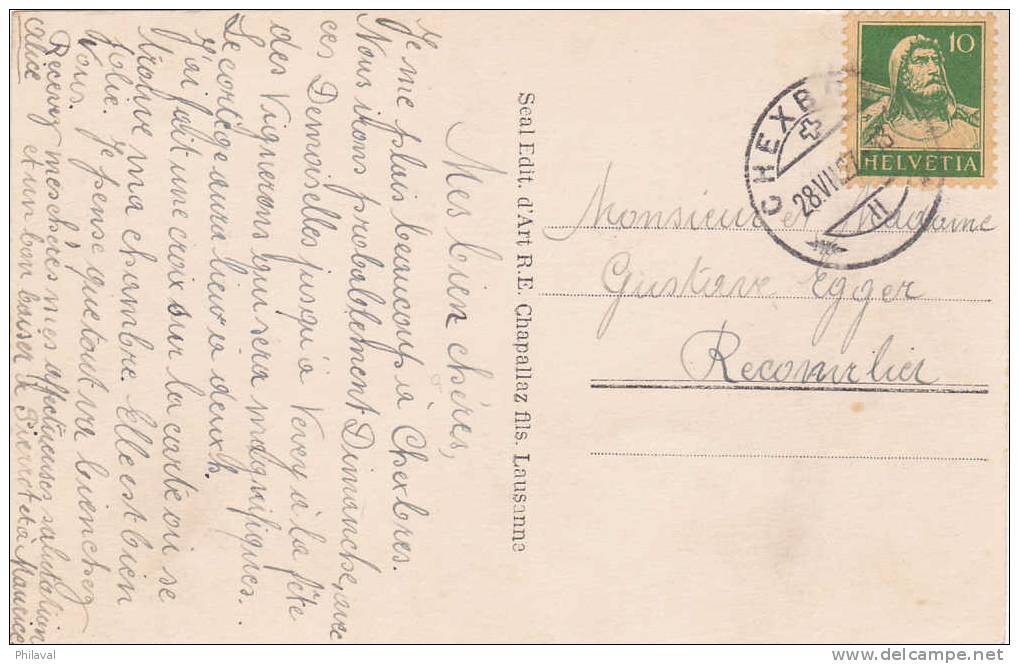 Mes bien chères,
Je me plais beaucoup à Chexbres.
Nous irons probablement Dimanche, avec
ces Demoiselles jusqu'à Vevey à la fête
des Vignerons qui sera magnifiques.
Le cortège aura lieu à deux h.
J'ai fait une croix sur la carte où se
trouve ma chambre. Elle est bien
jolie. Je pense que tout va bien chez
Vous.
Recevez mes chères mes affectueuses salutation
Alice et un bon baiser à Pierret et à Maurice
Seal Edit. d'Art R.E. Chapallaz fils. Lausanne
10
HELVETIA
CHEXB
28.VII.27
Monsieur et Madame
Gustave Egger
Reconvilier
Philaval
www.delcampe.net